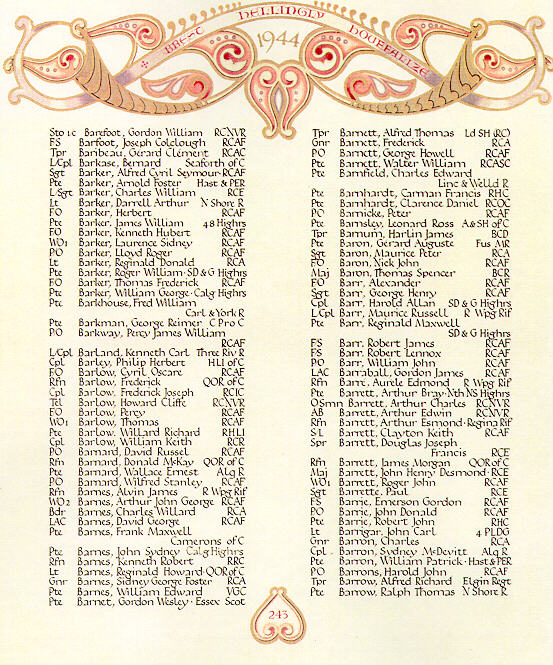 HELLINGLY
BREST 1944 HOUFFALIZE
Sto 1c Barefoot, Gordon William RCNVR
FS Barfoot, Joseph Colclough RCAF
Tpr Baribeau, Gerard Clément RCAC
L/Cpl Barkase, Bernard Seaforth of C
Sgt Barker, Alfred Cyril Seymour·RCAF
Pte Barker, Arnold Foster Hast & PER
L/Sgt Barker, Charles William RCE
Lt Barker, Darrell Arthur N Shore R
FO Barker, Herbert RCAF
Pte Barker, James William 48 Highrs
FO Barker, Kenneth Hubert RCAF
WO1 Barker, Laurence Sidney RCAF
PO Barker, Lloyd Roger RCAF
Lt Barker, Reginald Donald RCA
Pte Barker, Roger William·SD & G Highrs
FO Barker, Thomas Frederick RCAF
Pte Barker, William George·Calg Highrs
Pte Barkhouse, Fred William
Carl & York R
Pte Barkman, George Reimer C Pro C
PO Barkway, Percy James William
RCAF
L/Cpl Barland, Kenneth Carl Three Riv R
Cpl Barley, Philip Herbert HLI of C
FO Barlow, Cyril Oscare RCAF
Rfn Barlow, Frederick QOR of C
Cpl Barlow, Frederick Joseph RCIC
Tel Barlow, Howard Cliffe RCNVR
FO Barlow, Percy RCAF
WO1 Barlow, Thomas RCAF
Pte Barlow, Willard Richard RHLI
Cpl Barlow, William Keith RCR
PO Barnard, David Russel RCAF
Rfn Barnard, Donald McKay QOR of C
Pte Barnard, Wallace Ernest Alq R
PO Barnard, Wilfred Stanley RCAF
Rfn Barnes, Alvin James R Wpg Rif
WO2 Barnes, Arthur John George RCAF
Bdr Barnes, Charles Willard RCA
LAC Barnes, David George RCAF
Pte Barnes, Frank Maxwell
Camerons of C
Pte Barnes, John Sydney Calg Highrs
Rfn Barnes, Kenneth Robert RRC
Lt Barnes, Reginald Howard·QOR of C
Gnr Barnes, Sidney George Foster RCA
Pte Barnes, William Edward VGC
Pte Barnet, Gordon Wesley·Essex Scot
Tpr Barnett, Alfred Thomas Ld SH (RC)
Gnr Barnett, Frederick RCA
PO Barnett, George Howell RCAF
Pte Barnett, Walter William RCASC
Pte Barnfield, Charles Edward
Linc & Welld R
Pte Barnhardt, Carman Francis RHC
Pte Barnhardt, Clarence Daniel RCOC
PO Barnicke, Peter RCAF
Pte Barnsley, Leonard Ross A & SH of C
Tpr Barnum, Harlin James BCD
Pte Baron, Gérard Auguste Fus MR
Sgt Baron, Maurice Peter RCA
FO Baron, Nick John RCAF
Maj Baron, Thomas Spencer BCR
FO Barr, Alexander RCAF
Sgt Barr, George Henry RCAF
Cpl Barr, Harold Allan SD & G Highrs
L/Cpl Barr, Maurice Russell R Wpg Rif
Pte Barr, Reginald Maxwell
SD & G Highrs
FS Barr, Robert James RCAF
FS Barr, Robert Lennox RCAF
PO Barr, William John RCAF
LAC Barraball, Gordon James RCAF
Rfn Barré, Aurele Edmond R Wpg Rif
Pte Barrett, Arthur Bray·Nth NS Highrs
OSmn Barrett, Arthur Charles RCNVR
AB Barrett, Arthur Edwin RCNVR
Rfn Barrett, Arthur Esmond·Regina Rif
S·L Barrett, Clayton Keith RCAF
Spr Barrett, Douglas Joseph
Francis RCE
Rfn Barrett, James Morgan QOR of C
Maj Barrett, John Henry Desmond·RCE
WO1 Barrett, Roger John RCAF
Sgt Barrette, Paul RCE
FS Barrie, Emerson Gordon RCAF
PO Barrie, John Donald RCAF
Pte Barrie, Robert John RHC
Lt Barrigar, John Carl 4 PLDG
Gnr Barron, Charles RCA
Cpl Barron, Sydney McDevitt Alq R
Pte Barron, William Patrick·Hast & PER
PO Barrons, Harold John RCAF
Tpr Barrow, Alfred Richard Elgin Regt
Pte Barrow, Ralph Thomas N Shore R
243